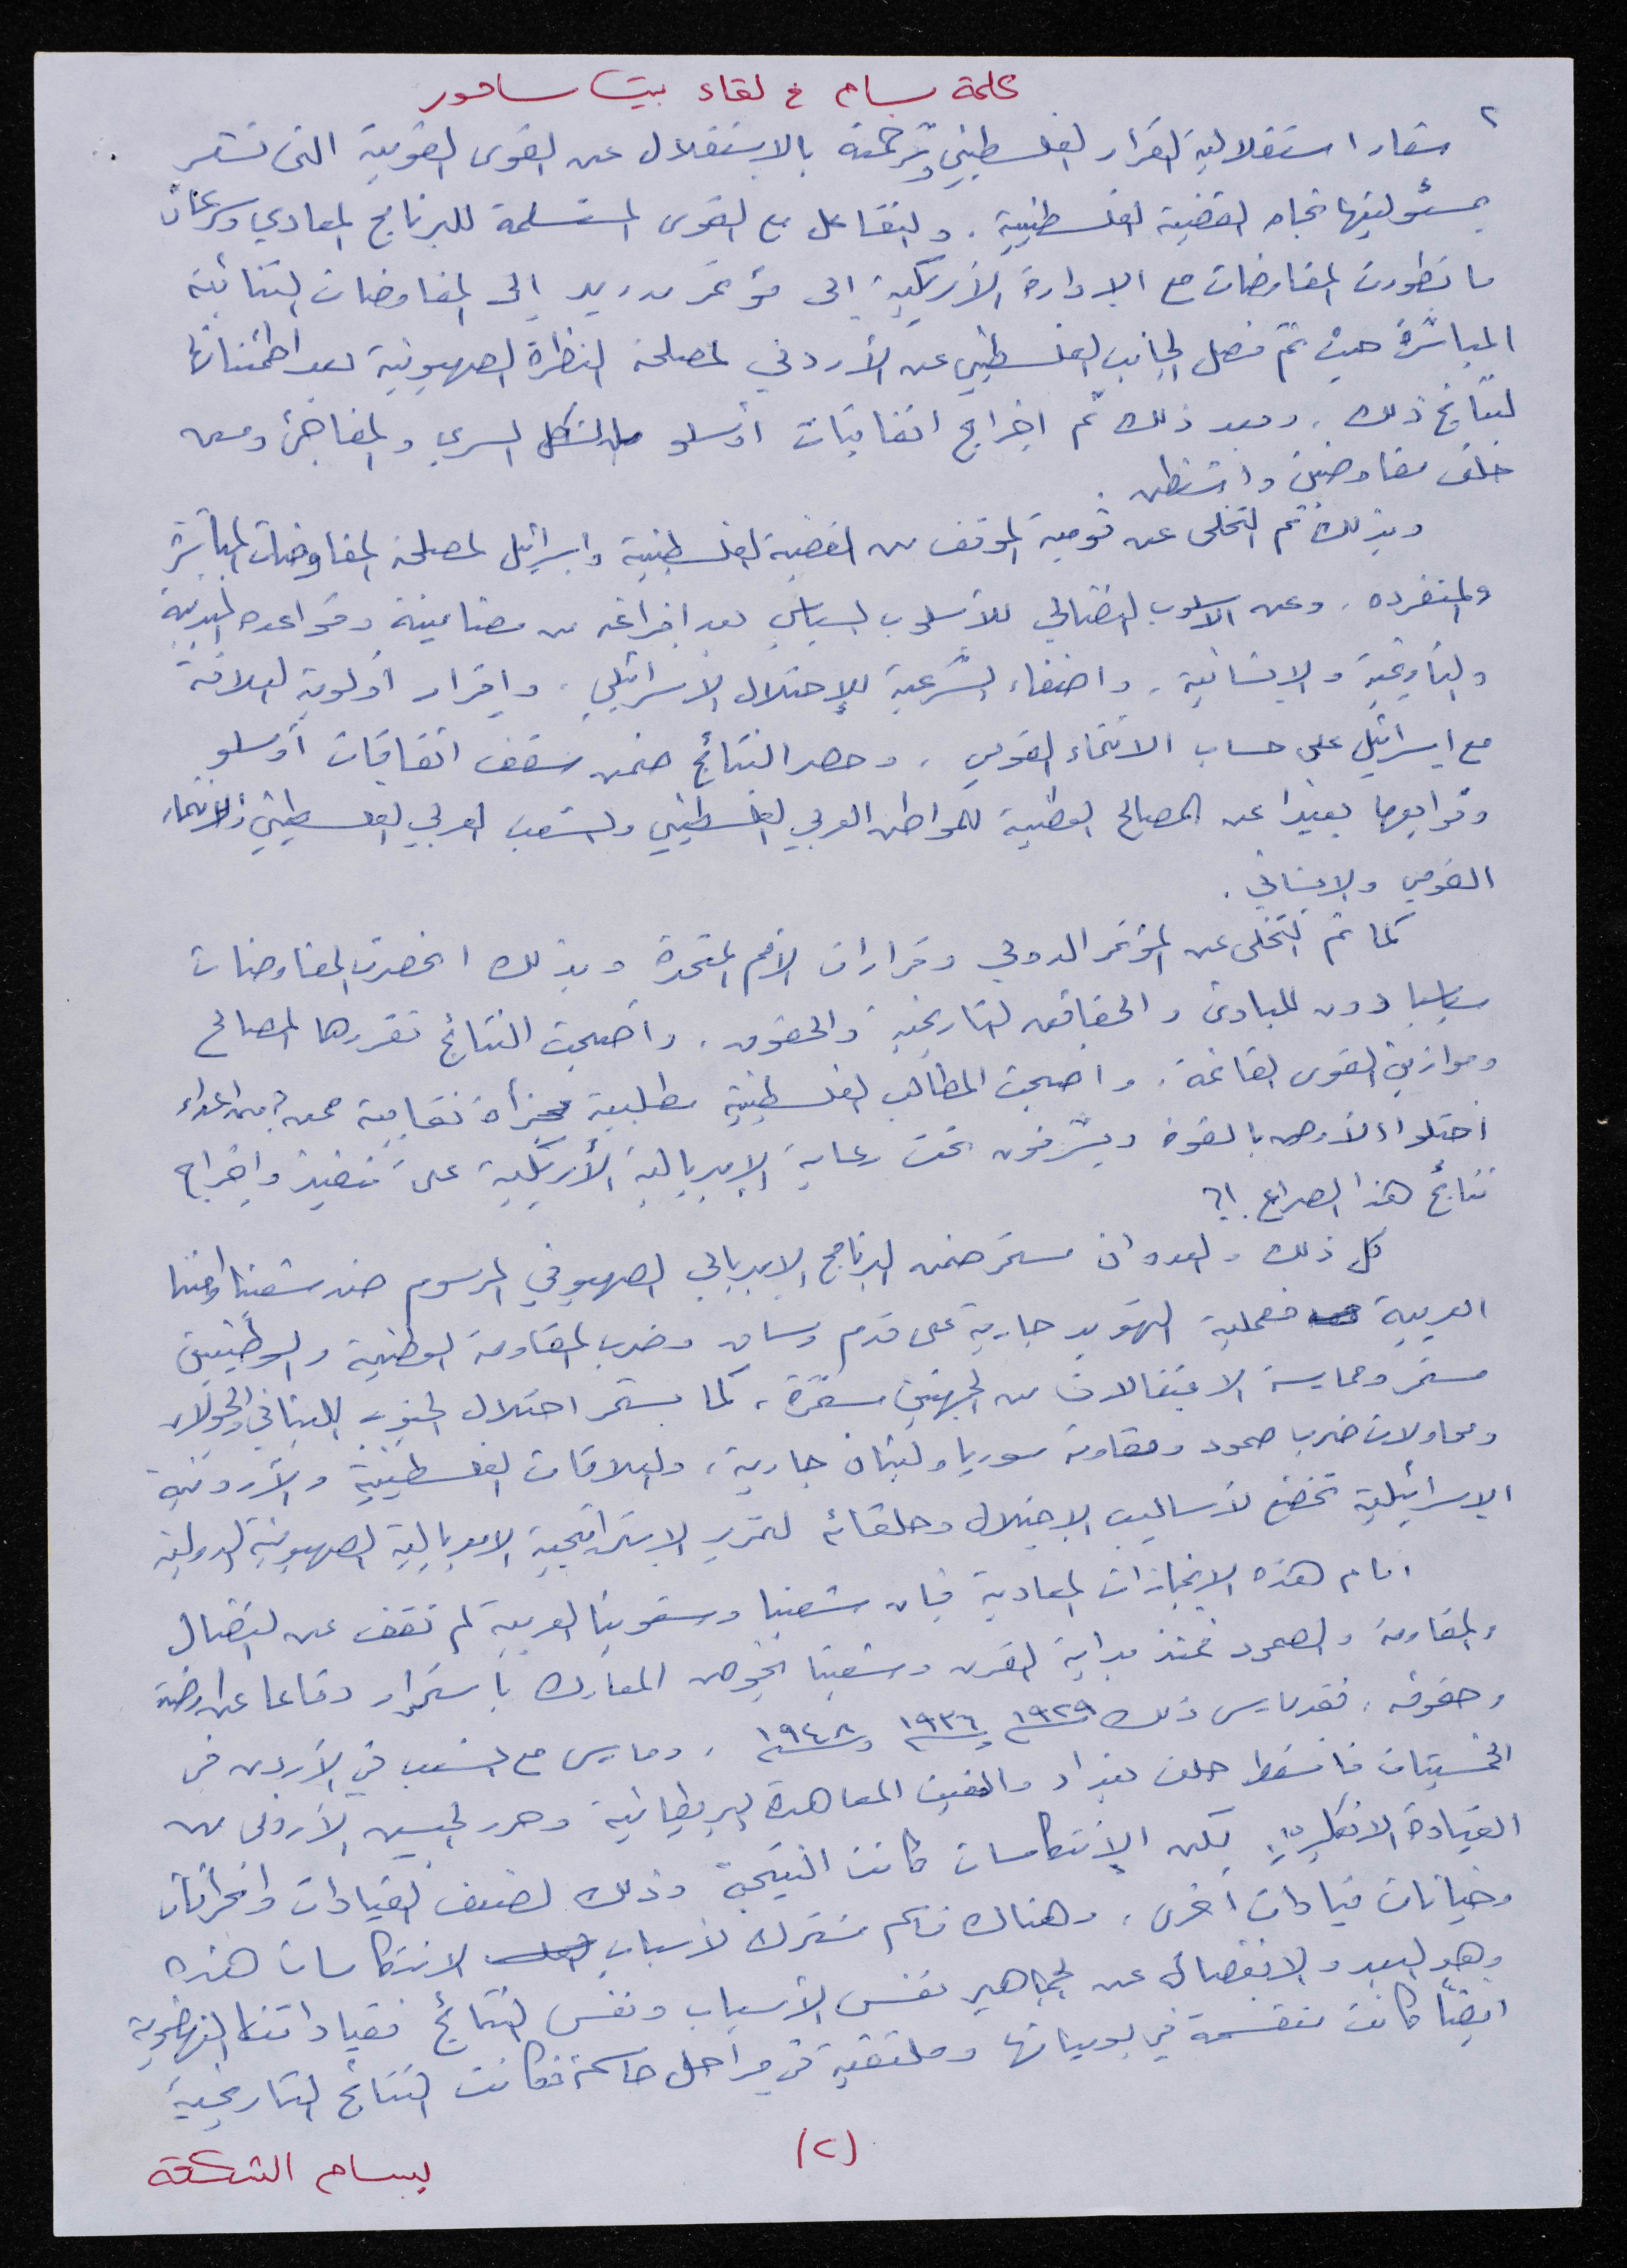 كلمة بسام في لقاء بيت ساحور
٢
شعار استقلالية القرار الفلسطيني وترجمته بالاستقلال عن القوى القومية التي تشعر
بمسئوليتها تجاه القضية الفلسطينية. والتفاعل مع القوى المستسلمة للبرنامج المعادي وسرعان
ما تطورت المفاوضات مع الادارة الأمريكية الى مؤتمر مدريد إلى المفاوضات الثنائية
المباشرة حيث تم فصل الجانب الفلسطيني عن الأردني لمصلحة النظرة الصهيونية بعد اطمئنانها
لنتائج ذلك. وبعد ذلك تم اخراج اتفاقيات أوسلو بالشكل السري والمفاجئ ومن
خلف مفاوضين واشنطن.
وبذلك تم التخلى عن قومية الموقف من القضية الفلسطينية واسرائيل لمصلحة المفاوضات المباشرة
والمنفرده. وعن الاسلوب النضالي للأسلوب السياسي بعد افراغه من مضامينة وقواعده المبدئية
والتاريخية والانسانية. واضفاء الشرعية للإحتلال الاسرائيلي. واقرار أولوية العلاقة
مع اسرائيل على حساب الانتماء القومي. وحصر النتائج ضمن سقف اتفاقات أوسلو
وتوابعها بعيدا عن المصالح الوطنية للمواطن العربي الفلسطيني والشعب العربي الفلسطيني والانتماء
القومي والانساني.
كما تم التخلى عن المؤتمر الدولي وقرارات الأمم المتحدة وبذلك انحصرت المفاوضات
سياسيا دون المبادئ والحقائق التاريخية والحقوق. وأصبحت النتائج تقررها المصالح
وموازين القوى القائمة. واصبحت المطالب الفلسطينية مطلبية مجزأة نقابية ممن؟ من اعداء
احتلوا الأرض بالقوة ويشرفون تحت رعاية الامبريالية الأمريكية على تنفيذ واخراج
نتائج هذا الصراع.!؟
كل ذلك والعدوان مستمر ضمن البرنامج الامبريالي الصهيوني المرسوم ضد شعبنا وامتنا
العربية فعملية التهويد جارية على قدم وساق وضرب المقاومة الوطنية والوطنيين
مستمر وممارسة الاعتقالات من الجهتين مستمرة، كما يستمر احتلال الجنوب اللبناني والجولان
ومحاولات ضرب صمود ومقاومة سوريا ولبنان جارية، والعلاقات الفلسطينية والأردنية
الاسرائيلية تخضع لأساليب الاحتلال وحلفائه لتمرير الاستراتيجية الامبريالية الصهيونية الدولية
امام هذه الانجازات المعادية فان شعبنا وشعوبنا العربية لم تقف عن النضال
والمقاومة والصمود فمنذ بداية القرن وشعبنا يخوض المعارك باستمرار دفاعا عن ارضه
وحقوقه، فقد مارس ذلك ١٩٢٩ و ١٩٣٦ و ١٩٤٨، ومارس مع الشعب في الأردن في
الخمسينات فاسقط حلف بغداد والغيت المعاهدة البريطانية وحرر الجيش الأردني من
القيادة الانكليزية، لكن الانتكاسات كانت النتيجة وذلك لضعف القيادات وانحرافات
وخيانات قيادات أخرى. وهناك قاسم مشترك لأسباب الانتكاسات هذه
وهو البعد والانفصال عن الجماهير نفس الأسباب ونفس النتائج فقياداتنا النهضوية
ايضاً كانت منقسمة في يومياتها وملتقية في مراحل حاسمة فكانت النتائج التاريخية
(٢)
بسام الشكعة